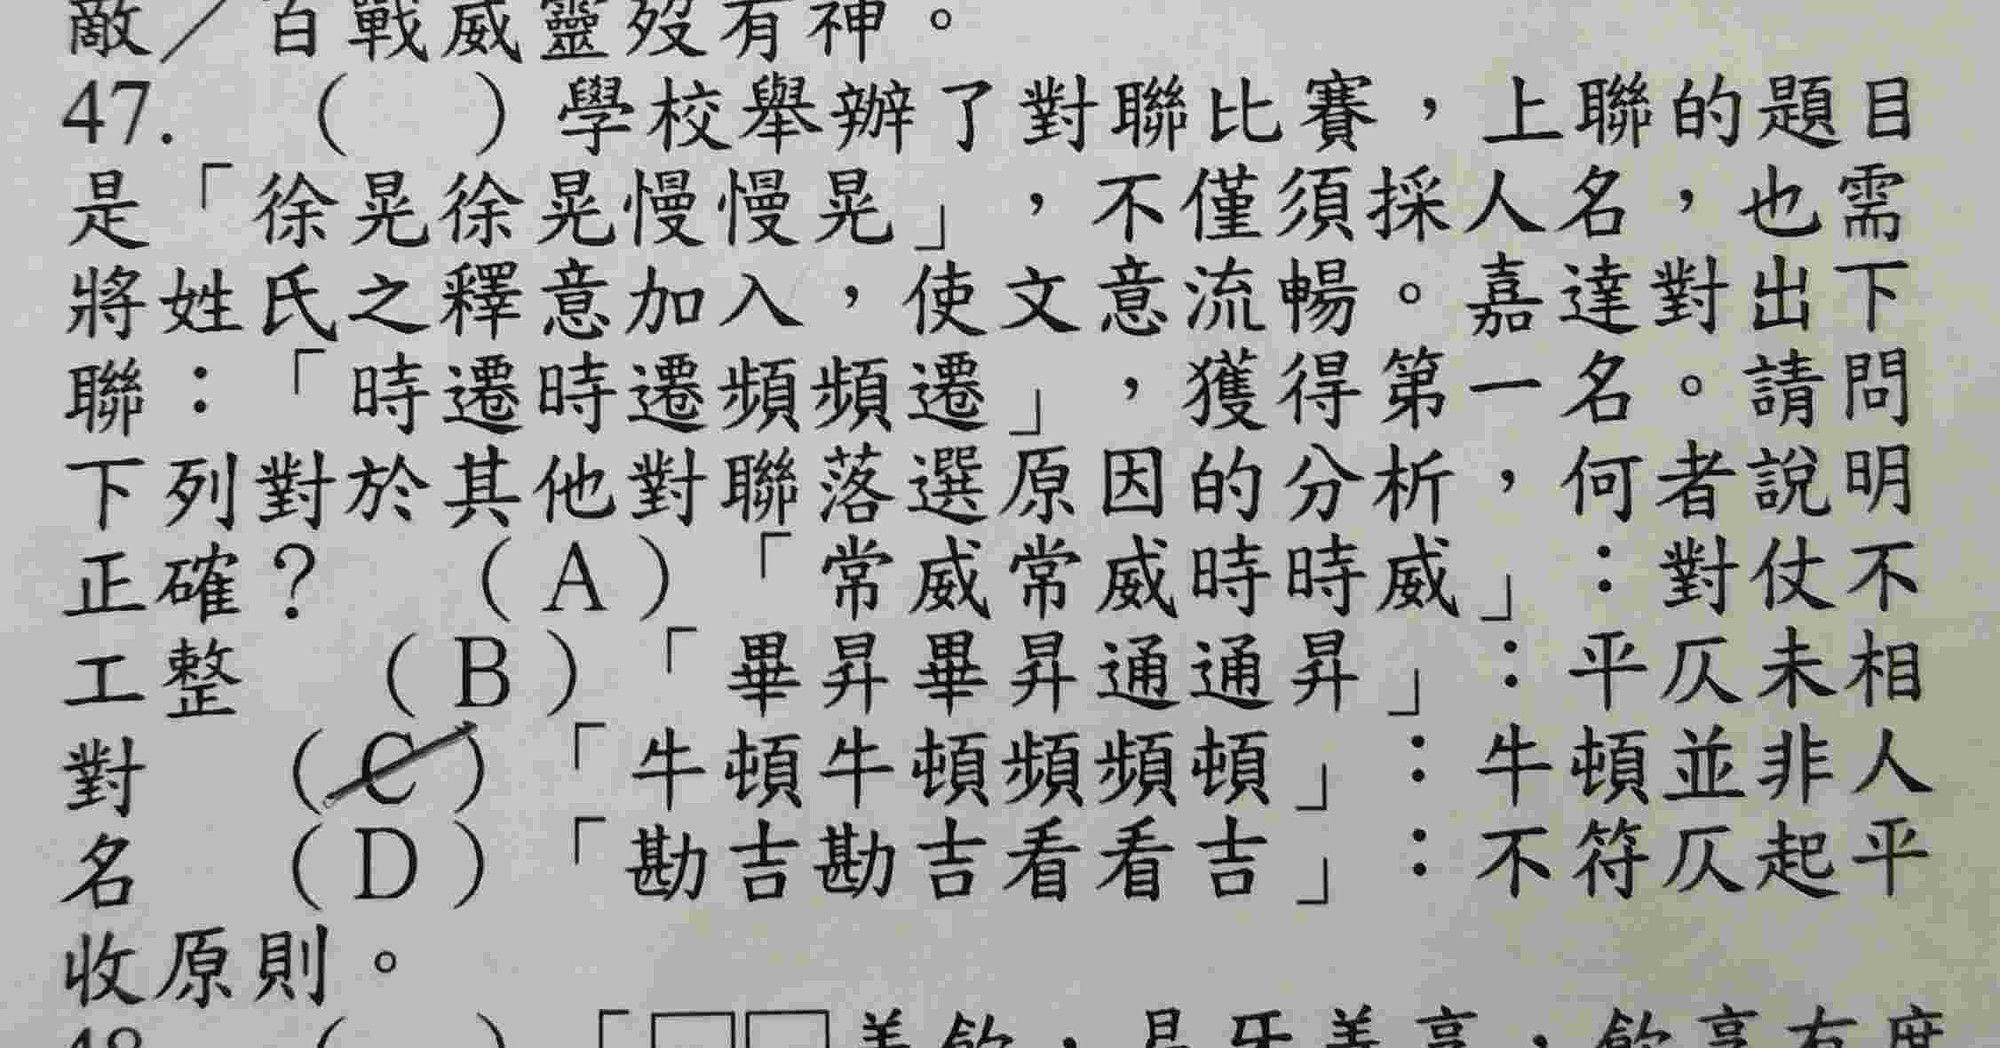 敵／百戰威靈歿有神。
47. （　）學校舉辦了對聯比賽，上聯的題目
是「徐晃徐晃慢慢晃」，不僅須採人名，也需
將姓氏之釋意加入，使文意流暢。嘉達對出下
聯：「時遷時遷頻頻遷」，獲得第一名。請問
下列對於其他對聯落選原因的分析，何者說明
正確？　（A）「常威常威時時威」：對仗不
工整　（B）「畢昇畢昇通通昇」：平仄未相
對　（C）「牛頓牛頓頻頻頓」：牛頓並非人
名　（D）「勘吉勘吉看看吉」：不符仄起平
收原則。
48. （　）「□□善飲，易牙善烹，飲烹有度